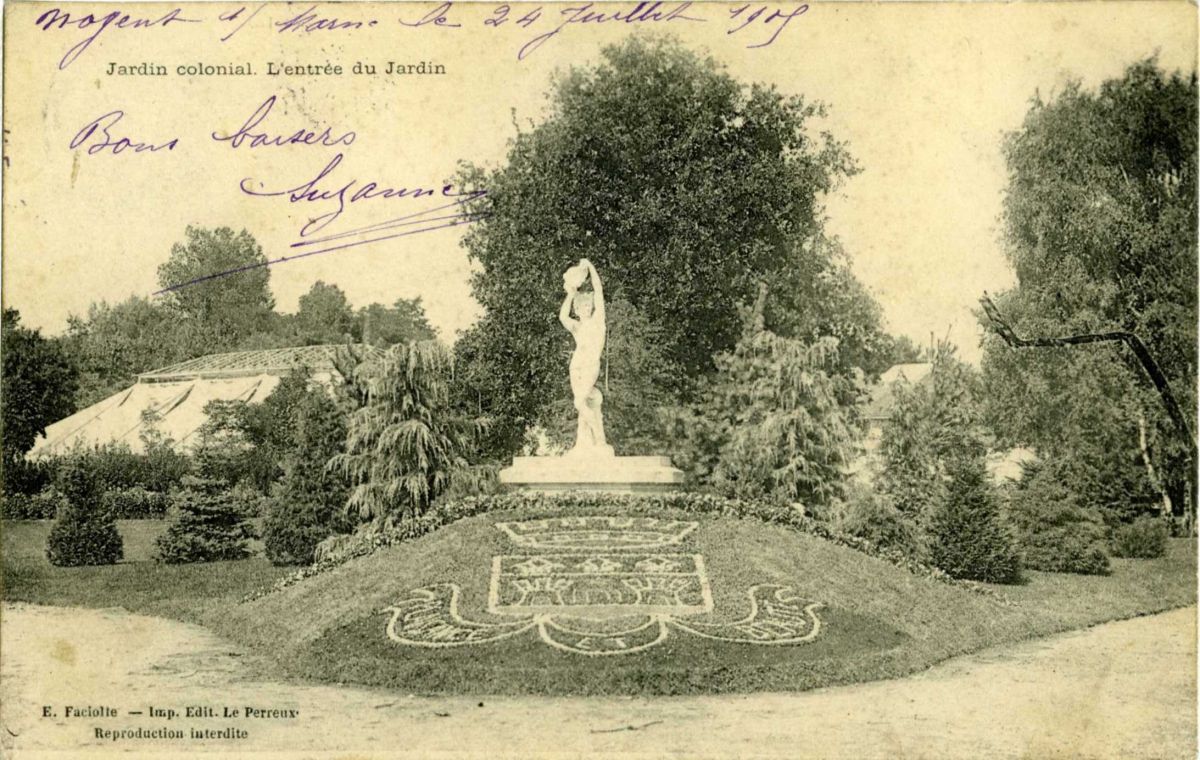 Nogent s/ Marne le 24 Juillet 1905
Jardin colonial. L'entrée du Jardin
Bons baisers
Suzanne
E. Faciolle — Imp. Edit. Le Perreux
Reproduction interdite